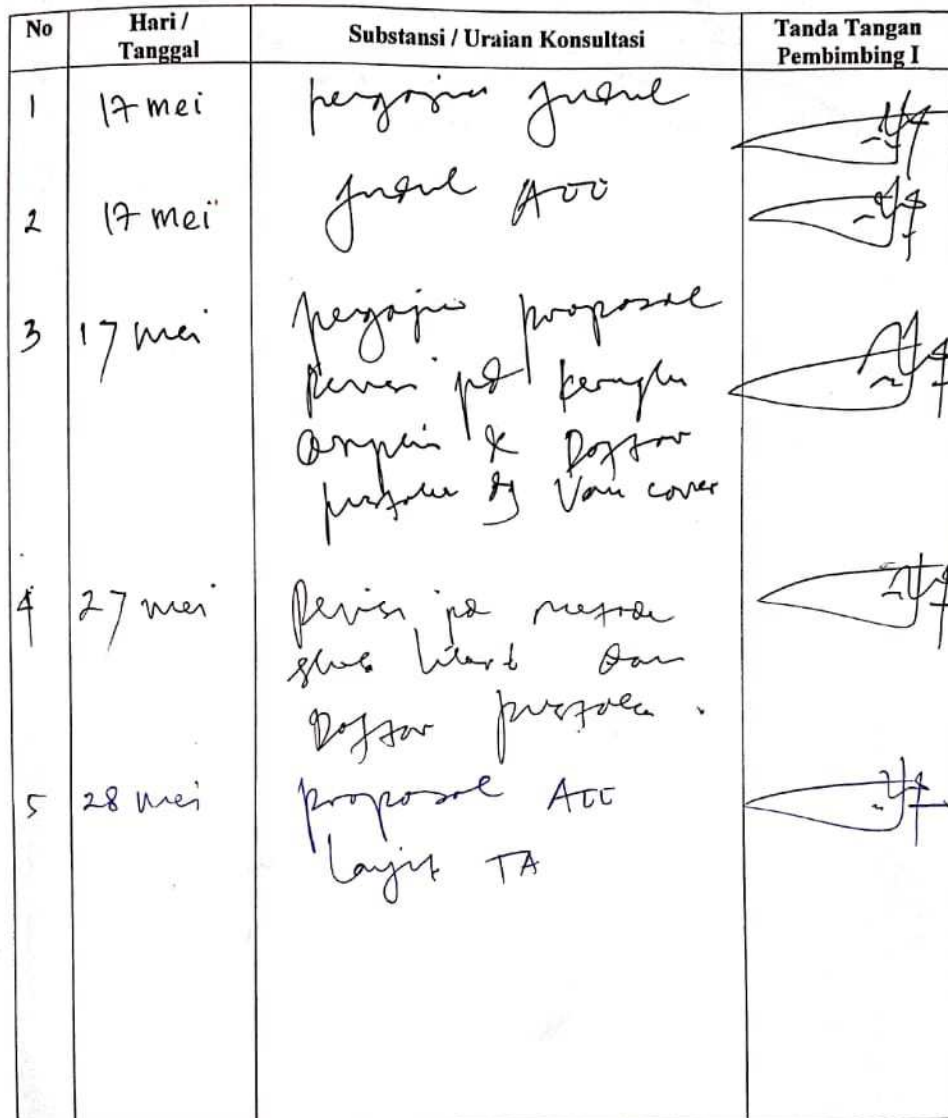 No Hari / Tanggal Substansi / Uraian Konsultasi Tanda Tangan Pembimbing I
1 17 mei pengajuan Judul
2 17 mei Judul ACC
3 17 mei pengajuan proposal
Revisi pd
& Daftar
pustaka dg Van cover
4 27 mei Revisi pd metode
dan
Daftar pustaka .
5 28 mei proposal ACC
lanjut TA